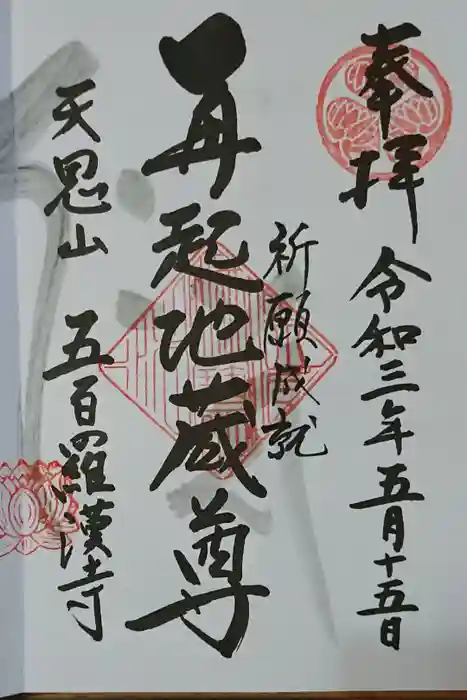 奉拝
令和三年五月十五日
祈願成就
再起地蔵尊
天恩山
五百羅漢寺